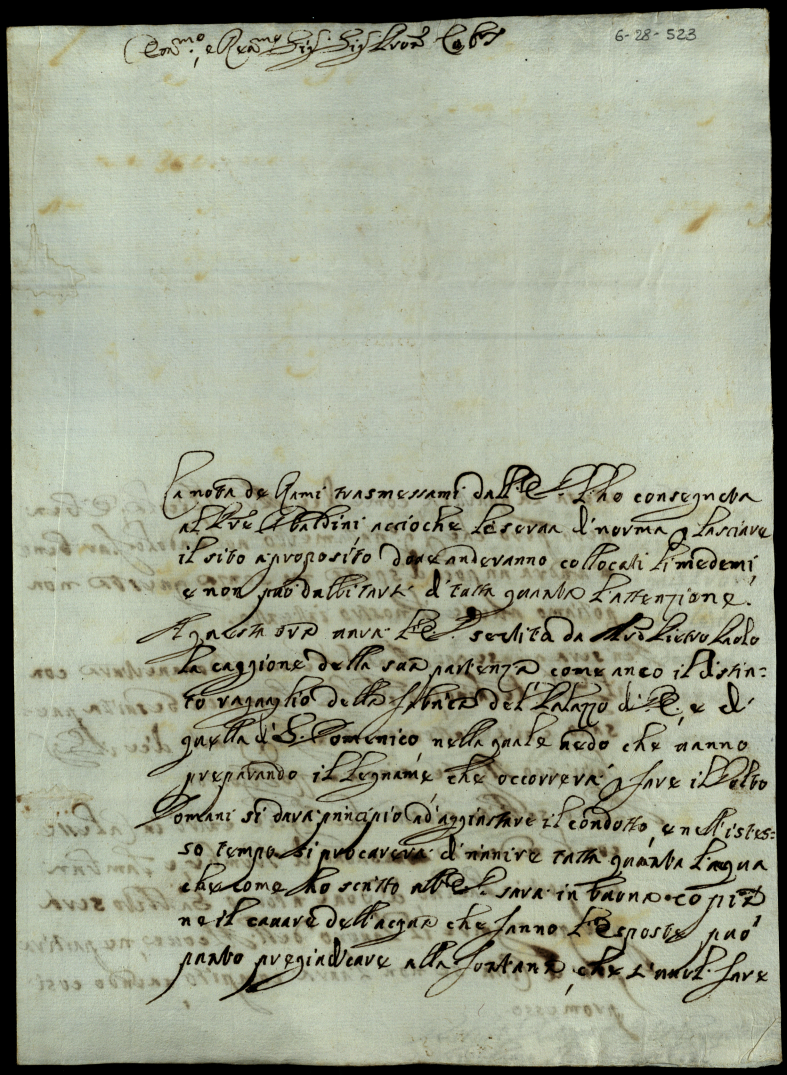 6-28-523
Ecc.mo e Rev.mo Sig.r Sig.r Pron.
La nota de Rami trasmessami dall'E. V. l'ho consegnata
al Pre Ubaldini accioche le serva di norma p lasciare
il sito a proposito dove anderanno collocati li medemi,
e non può dubbitare di tutta quanta l'attenzione.
A questa ora avrà l'E. V. sentita da Pietro Paolo
la caggione della sua partenza come anco il distin-
to raguaglio della fabrica del Palazzo di R. e di
quella di S. Domenico nella quale vedo che vanno
preparando il legname che occorrerà p fare il Volto
Domani si darà principio ad aggiustare il condotto, e nell'istes-
so tempo si procarerà d'unire tutta quanta l'acqua
che come ho scritto all'E. V. sarà in buona copia
ne il cavare dell'acqua che fanno l'Esposte può
punto pregiudicare alla fontana, che s'avrà fare